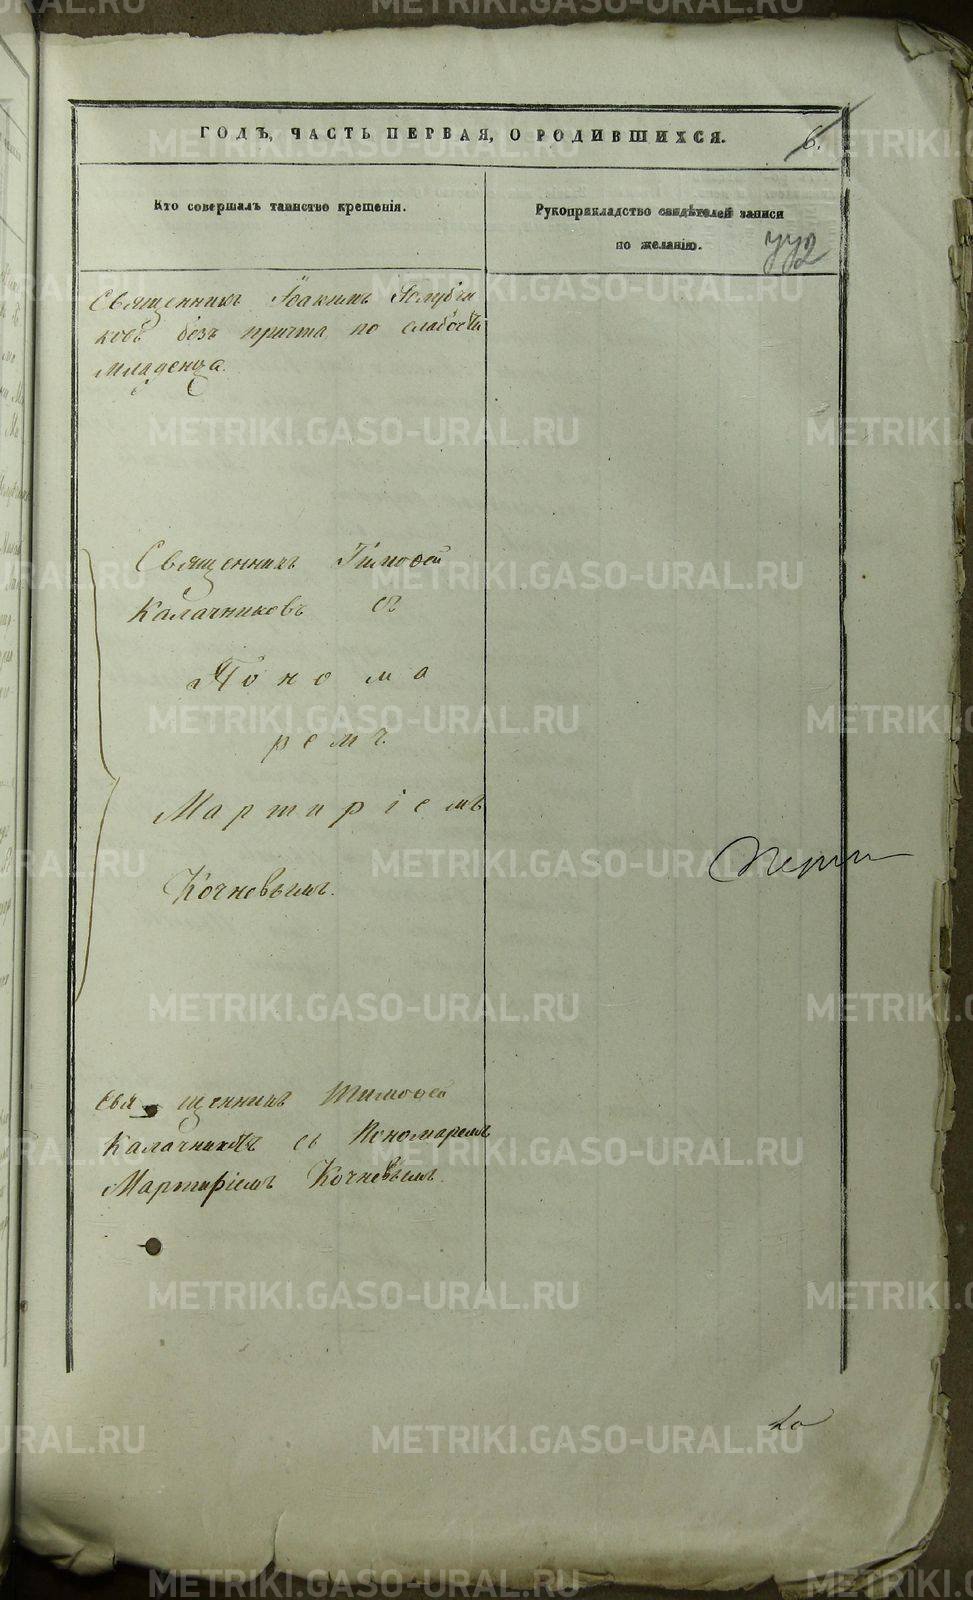 ГОДЪ, ЧАСТЬ ПЕРВАЯ, О РОДИВШИХСЯ.
6.
Кто совершалъ таинство крещенія.
Рукоприкладство свидѣтелей записи
по желанію.
Священникъ Іоакимъ Голубчи
ковъ безъ причта, по слабости
младенца.
Священникъ Тимофей
Калачниковъ съ
Поно ма
ремъ
Мартиріемъ
Кочневымъ.
Свя щенникъ Тимофей
Калачниковъ съ Пономаремъ
Мартиріемъ Кочневымъ.
METRIKI.GASO-URAL.RU